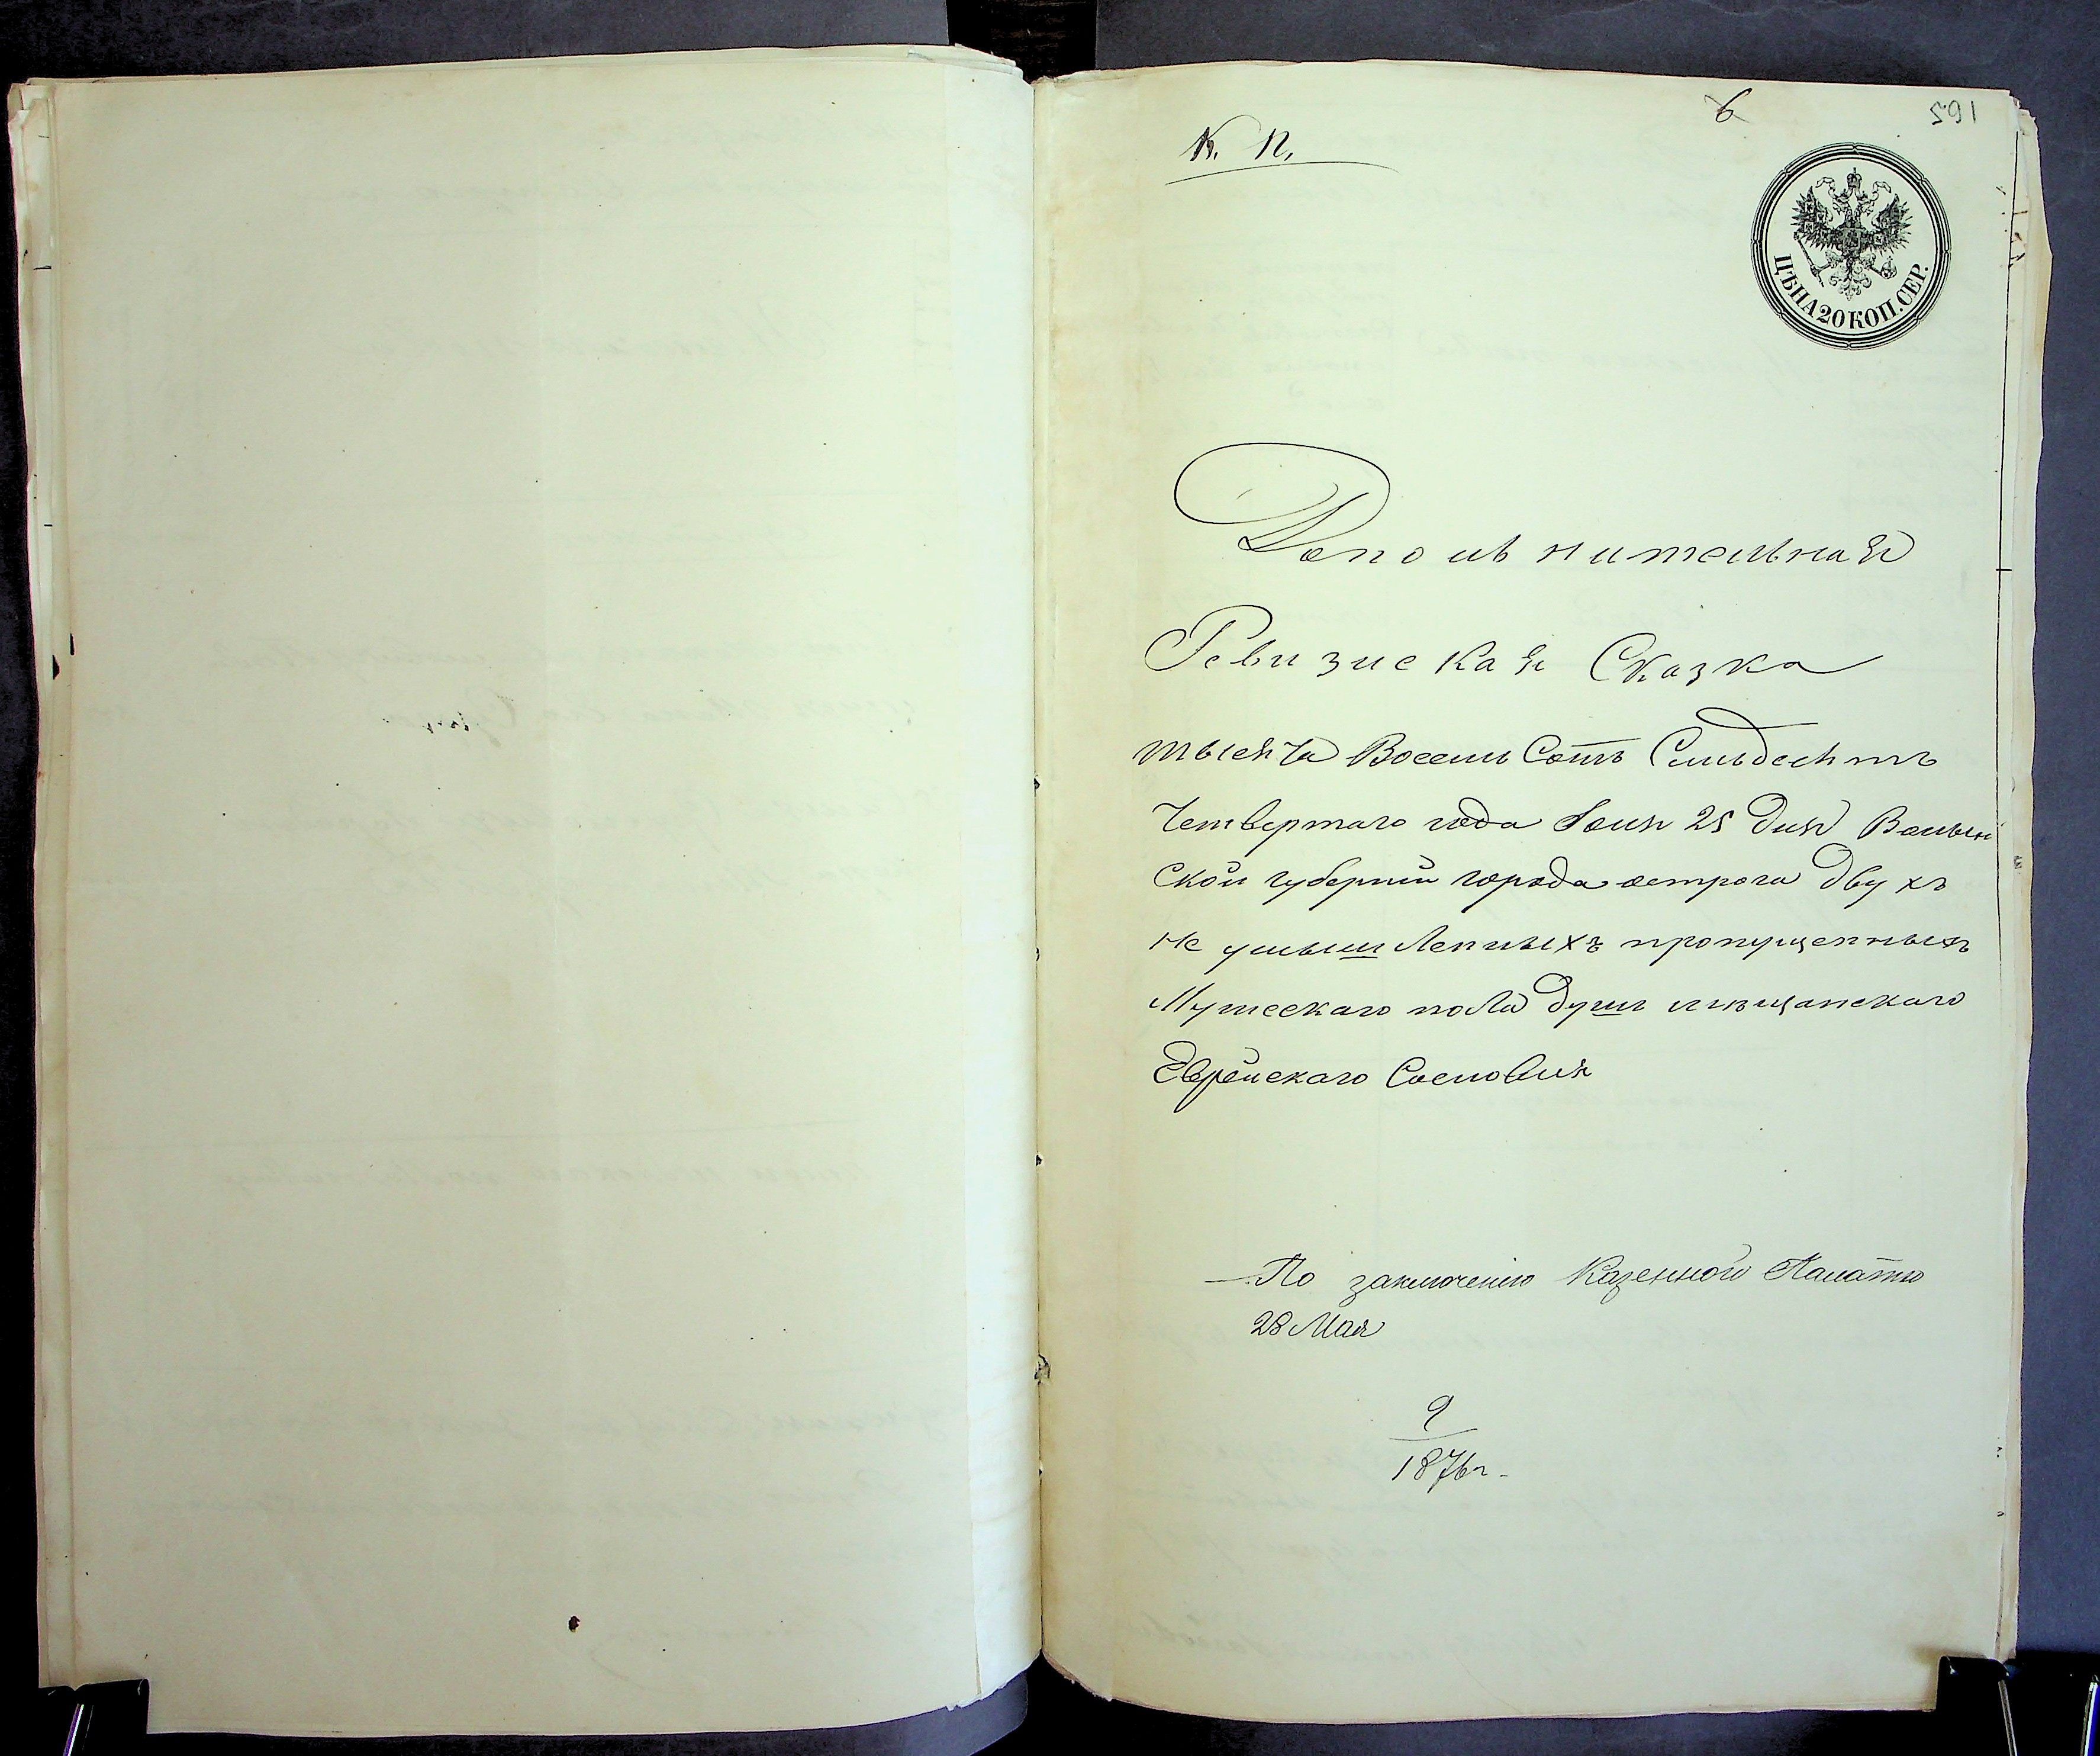 6
591
К. П.
ЦѢНА 20 КОП. СЕР.
Допольнительная
Ревизиская Сказка
тысяча Восемь Сотъ Семьдесятъ
Четвертаго года Іюня 25 дня Волын
ской губерніи города острога двухъ
не умышленныхъ пропущенныхъ
Мужескаго пола душъ мѣщанскаго
Еврейскаго Сословія
По заключенію Казенной Палаты
28 Мая
9
1876 г.